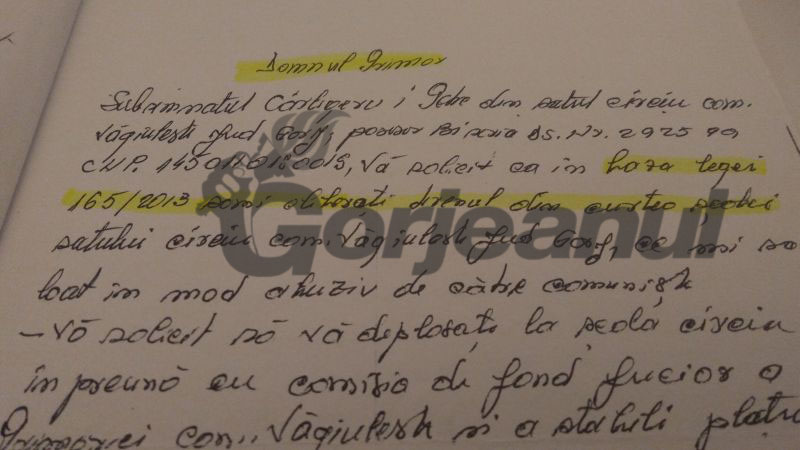 Domnul Primar
Subsemnatul Cârligeru i Petre din satul cireiu com.
Văgiulești jud Gorj, posesor BI seria DS. Nr. 2925
CNP. vă solicit ca în baza legei
165/2013 sămi eliberați dremul din curtea școlei
satului cireiu com. Văgiulești jud Gorj, ce mi sa
loat în mod abuziv de către comuniști
– Vă solicit să vă deplasați la școlă cireiu
împreună cu comisia de fond funciar a
Primăriei com.. Văgiulești și a stabili
Gorjeanul